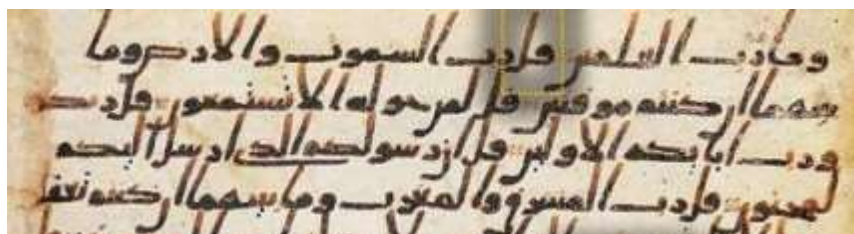 وما رب العلمين قل رب السموت والارض وما
بينهما ان كنتم موقنين قل لمن حوله الا تستمعون قل ربكم
ورب ابايكم الاولين قل ان رسولكم الذي ارسل اليكم
لمجنون قل رب المشرق والمغرب وما بينهما ان كنتم